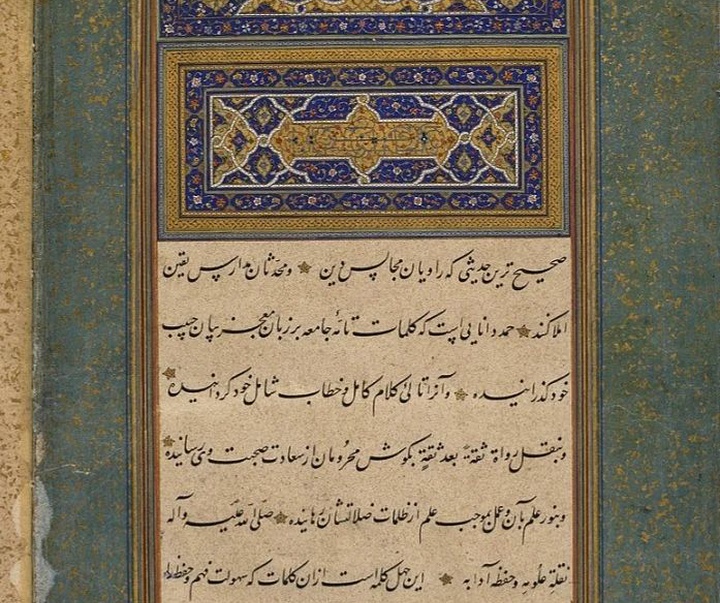 صحیح ترین حدیثی که راویان مجالس دین و محدثان مدارس یقین
املا کنند حمد دانایی است که کلمات تامّهٔ جامعه بر زبان معجز بیان حبیب
خود گذرانیده و آنرا تالی کلام کامل و خطاب شامل خود گردانیده
و بنقل رواة ثقةً بعد ثقةٍ بگوش محرومان از سعادت صحبت وی رسانیده
و بنور علم بآن و عمل بموجب علم از ظلمات ضلالتشان رهانیده صلی الله علیه و آله
نقلة علومه و حفظة آدابه این چهل کلمه است ازان کلمات که سهولت فهم و حفظ را